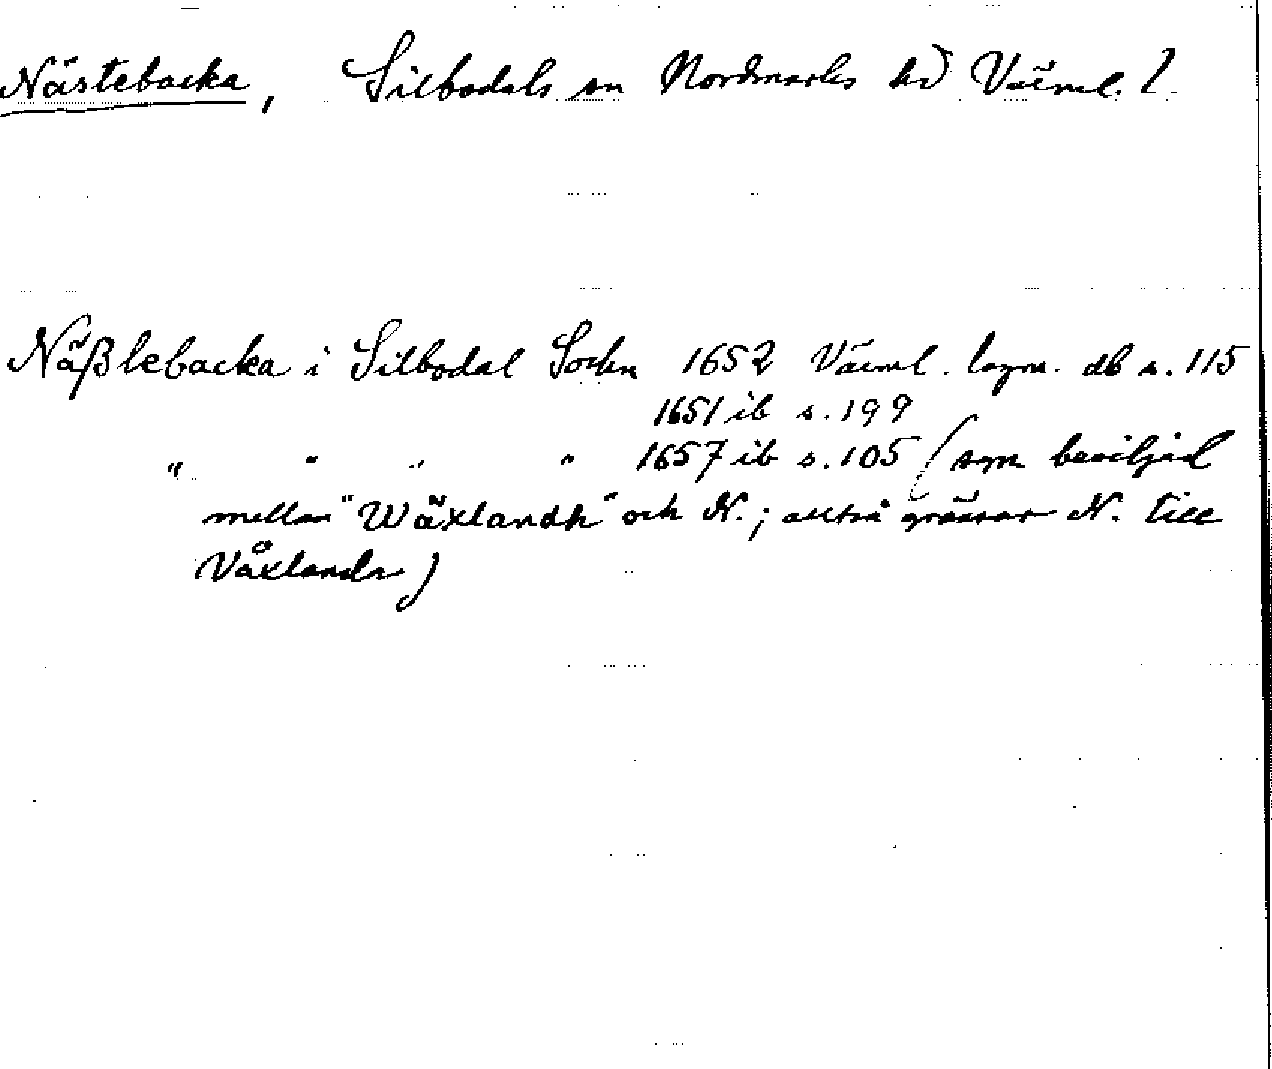 Nästebacka, Silbodals sn Nordmarks hd Värml. l.
Näßlebacka i Silbodal Sochn 1652 Värml. lagm. db s. 115
1651 ib s. 199
" " " " 1657 ib s. 105 (syn beviljad
mellan "Wäxlandh" och N.; alltså gränsar N. till
Växlanda)